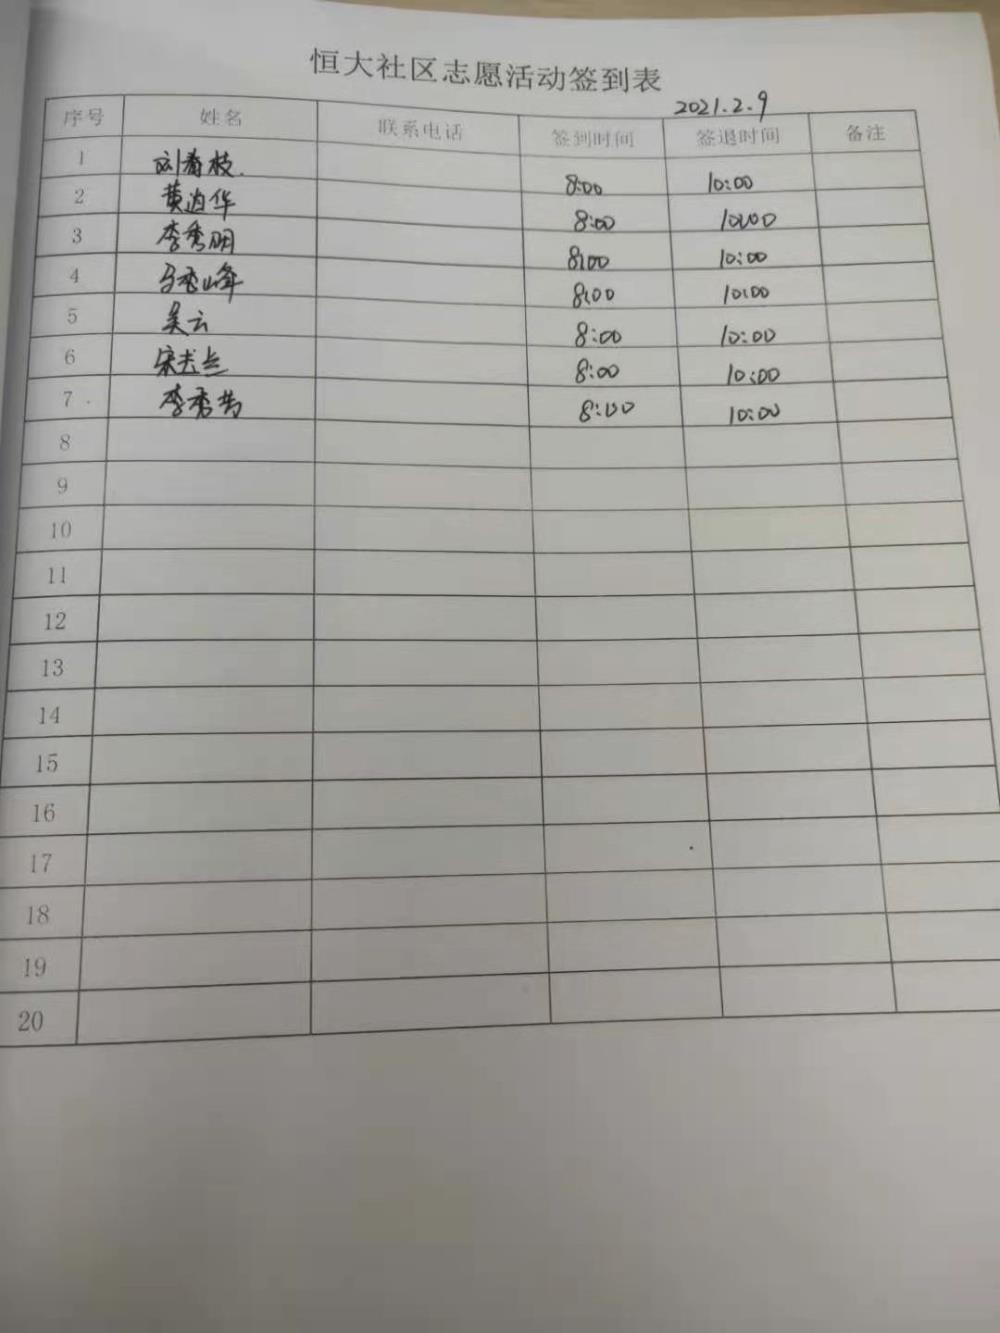 恒大社区志愿活动签到表
2021.2.9
序号 姓名 联系电话 签到时间 签退时间 备注
1 刘春枝 8:00 10:00
2 黄迎华 8:00 10:00
3 李秀明 8:00 10:00
4 马秀峰 8:00 10:00
5 吴云 8:00 10:00
6 宋 兰 8:00 10:00
7 李秀 8:00 10:00
8
9
10
11
12
13
14
15
16
17
18
19
20